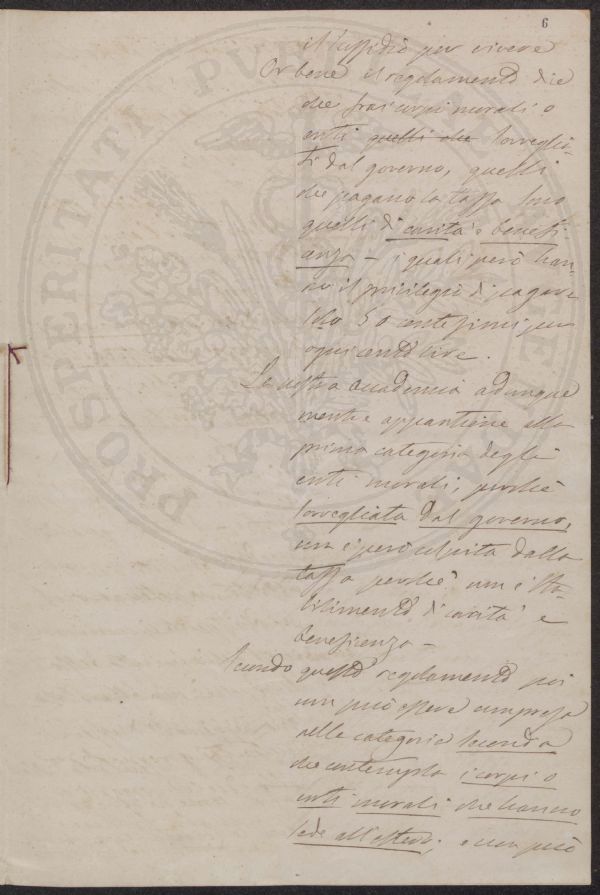 6
il sussidio per vivere
Or bene il regolamento dice
che fra i corpi morali o
enti quelli che sorveglia-
ti dal governo, quelli
che pagano la tassa sono
quelli di carità e benefi-
cenza – i quali però han-
no il privilegio di pagare
solo 50 centesimi per
ogni cento lire.
La nostra accademia adunque
mentre appartiene alla
prima categoria degli
enti morali, perchè
sorvegliata dal governo,
non è però colpita dalla
tassa perchè non è sta-
bilimento di carità e
beneficenza –
Secondo questo regolamento poi
non può essere compresa
nella categoria seconda
che contempla i corpi o
enti morali che hanno
sede all'estero; e non può
PROSPERITATI PUBLICAE